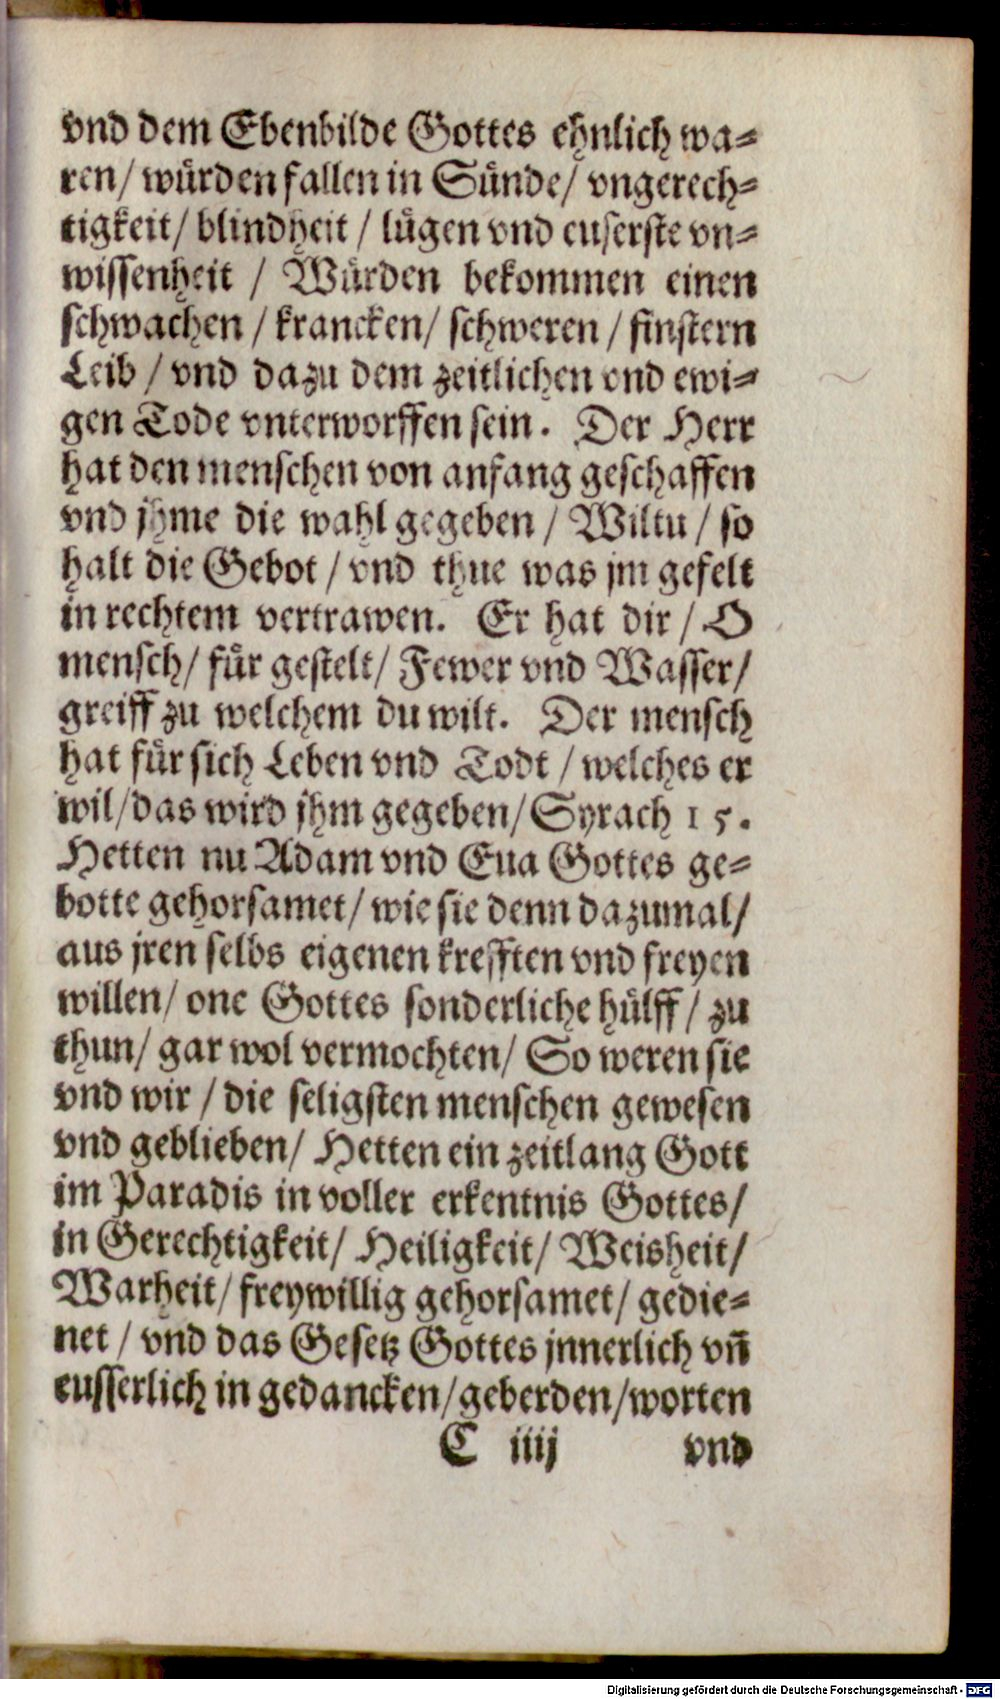 vnd dem Ebenbilde Gottes ehnlich wa⸗
ren/ würden fallen in Sünde/ vngerech⸗
tigkeit/ blindheit / lügen vnd euserste vn⸗
wissenheit / Würden bekommen einen
schwachen / krancken/ schweren / finstern
Leib / vnd dazu dem zeitlichen vnd ewi⸗
gen Tode vnterworffen sein. Der Herr
hat den menschen von anfang geschaffen
vnd jhme die wahl gegeben / Wiltu / so
halt die Gebot / vnd thue was jm gefelt
in rechtem vertrawen. Er hat dir / O
mensch/ für gestelt/ Fewer vnd Wasser/
greiff zu welchem du wilt. Der mensch
hat für sich Leben vnd Todt / welches er
wil/das wird jhm gegeben/ Syrach 15.
Hetten nu Adam vnd Eua Gottes ge⸗
botte gehorsamet/ wie sie denn dazumal/
aus jren selbs eigenen krefften vnd freyen
willen/ one Gottes sonderliche hülff / zu
thun/ gar wol vermochten/ So weren sie
vnd wir / die seligsten menschen gewesen
vnd geblieben/ Hetten ein zeitlang Gott
im Paradis in voller erkentnis Gottes/
in Gerechtigkeit/ Heiligkeit/ Weisheit/
Warheit/ freywillig gehorsamet/ gedie⸗
net / vnd das Gesetz Gottes jnnerlich vn̄
eusserlich in gedancken/geberden/worten
C iiij vnd
Digitalisierung gefördert durch die Deutsche Forschungsgemeinschaft - DFG